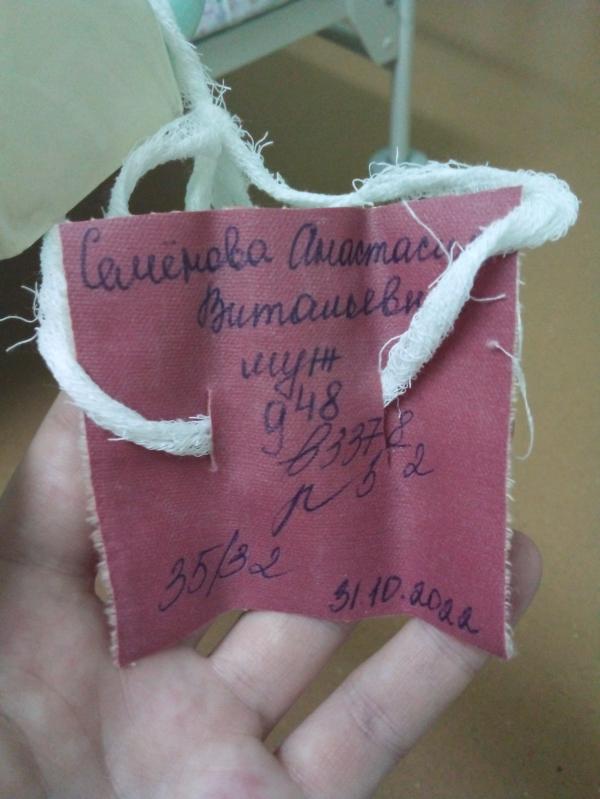 Семёнова Анастасия
Витальевна
муж
9 48
в 3378
р 52
35/32
31.10.2022